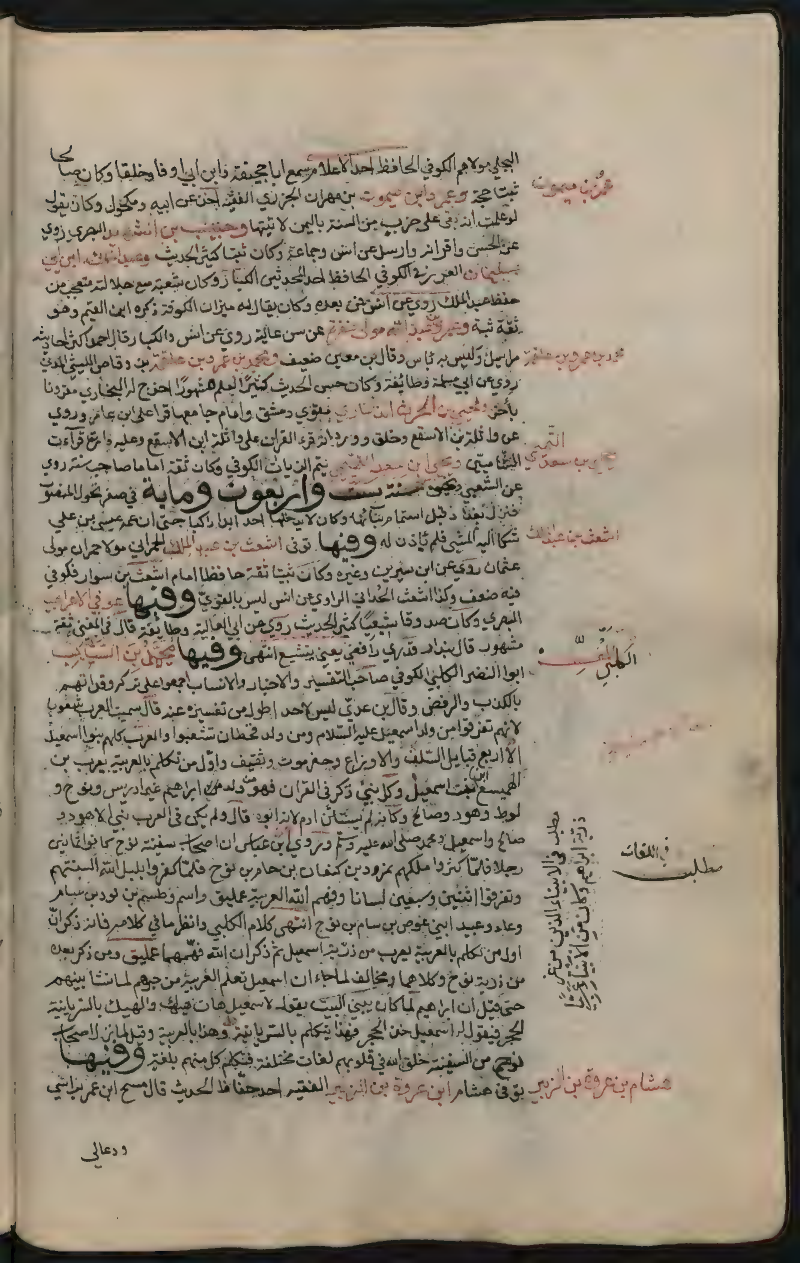 البجلي مولاهم الكوفي الحافظ احد الاعلام سمع ابا جحيفة وابن ابي اوفا وخلقا وكان صالحا
ثبتا حجة وعمرو ابن ميموت بن مهران الجزري الفقيه اخذ عن ابيه ومكحول وكان يقول
لو علمت انه بقي علي حرف من السنة باليمن لاتيتها وحبيب بن الشهيد البصري روي
عن الحسن واقرانه وارسل عن انس وجماعة وكان ثبتا كثير الحديث وعبد الملك ابن ابي
سليمان العرزمي الكوفي الحافظ احد المحدثين الكبار وكان شعبة مع جلالته متعجب من
حفظ عبد الملك روي عن انس فمن بعده وكان يقال له ميزان الكوفة ذكره ابن القيم وهو
ثقة ثبة وعمر بن عبد الله مولى غفرة عن سن عالية روي عن انس والكبار قال احمد اكثر احاديثه
مراسيل وليس به باس وقال بن معين ضعيف ومحمد بن عمرو بن علقمة بن وقاص الليثي المدني
روي عن ابي سلمة وطائفة وكان حسن الحديث كثير العلم مشهورا اخرج له البخاري مقرونا
باخر ويحيى بن الحرث الذماري مقري دمشق وامام جامعها قرا على ابن عامر وروي
عن واثلة بن الاسقع وخلق وورد انه قرء القران على واثلة ابن الاسقع وعليه دارت قرآءت
الشاميين ويحيى ابن سعد التيمي تيم الرباب الكوفي وكان ثقة اماما صاحب سنة روي
عن الشعبي ونحوه سنة ست واربعون وماية في صفر تحول المنصور
فنزل بغداد قبل استتمام بنائها وكان لا يدخلها احد ابدا راكبا حتى ان عمه عيسى بن علي
شكا اليه المشي فلم ياذن له وفيها توفي اشعث بن عبد الملك الحمراني مولا حمران مولى
عثمان روي عن ابن سيرين وغيره وكان ثبتا ثقة حافظا امام اشعث بن سوار فكوفي
فيه ضعف وكذا اشعث الحداني الراوي عن انس ليس بالقوي وفيها عوف الاعرابي
البصري وكان صدوقا شيعيا كثير الحديث روي عن ابي العالية وطائفة قال في المغني ثقة
مشهور قال بندار قدري رافضي يعني يتشيع انتهى وفيها محمد بن السائب
ابوا النضر الكلبي الكوفي صاحب التفسير والاخبار والانساب اجمعوا على تركه وقد اتهم
بالكذب والرفض وقال بن عدي ليس لاحد اطول من تفسيره عنه قال سميت العرب شعوبا
لانهم تفرقوا من ولد اسمعيل عليه السلام ومن ولد قحطان تشعبوا والعرب كلهم بنوا اسمعيل
الا اربع قبايل السلف والاوزاع وحضرموت وثقيف واول من تكلم بالعربية يعرب بن
الهميسع ابن نبت اسمعيل وكل نبي ذكر في القران فهو من ولد ابراهيم غير ادريس ونوح و
لوط وهود وصالح وكانه لم يستثن ادم لانه ابوه قال ولم يكن في العرب نبي الا هود و
صالح واسمعيل ومحمد صلى الله عليه وسلم وتروي ابن عباس ان اصحاب سفينة نوح كانوا ثمانين
رجلا فلما كثروا ملكهم نمرود بن كنعان بن حام بن نوح فلما كفروا بلبل الله السنتهم
وتفرقوا اثنين وسبعين لسانا وفهم الله العربية عمليق واسم وطسم بن لود بن سام
وعاد وعبيد ابني عوص بن سام بن نوح انتهى كلام الكلبي وانظر ما في كلامه فانه ذكر ان
اول من تكلم بالعربية يعرب من ذرية اسمعيل ثم ذكر ان الله فهمها عمليق ومن ذكر بعده
من ذرية نوح وكلاهما مخالف لما جاء ان اسمعيل تعلم العربية من جرهم لما نشا بينهم
حتى قيل ان ابراهيم لما كان يبني البيت يقول لاسمعيل هات هيك والهيك بالسريانية
الحجر فيقول له اسمعيل خذ الحجر فهذا يتكلم بالسريانية وهذا بالعربية وقيل لما نزل اصحاب
نوح من السفينة خلق الله في قلوبهم لغات مختلفة فتكلم كل منهم بلغته وفيها
توفي هشام ابن عروة بن الزبير الفقيه احد حفاظ الحديث قال مسح ابن عمر براسي
ودعالي
عمر بن ميموت
محمد بن عمرو بن علقمة
التيمي
يحيى بن سعد
اشعث بن عبد الملك
الكلبي المفسر
مطلب في اللغات
مطلب في الانبياء الذين من غير
ذرية ابراهيم وكان من الانبياء عربيا
هشام بن عروة بن الزبير